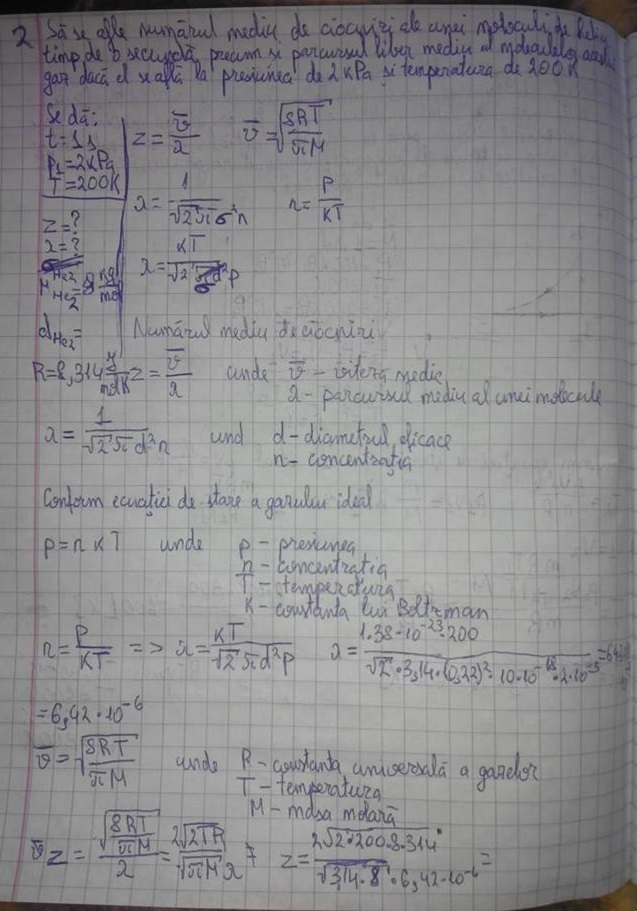 2 Să se afle numărul mediu de ciocniri ale unei molecule de Heliu
timp de o secundă, precum și parcursul liber mediu al moleculelor acestui
gaz dacă el se află la presiunea de 2 kPa și temperatura de 200 K
Se dă:
t = 1s
p₁ = 2kPa
T = 200K
z = ?
λ = ?
z = v̄/λ v̄ = √(8RT/πM)
λ = 1/(√2 π σ² n) n = P/KT
λ = KT/(√2 π d² p)
M He₂ = 8 kg/mol
d He₂ =
R = 8,314 J/mol K
Numărul mediu de ciocniri
z = v̄/λ unde v̄ – viteza medie
λ – parcursul mediu al unei molecule
λ = 1/(√2 π d² n) und d – diametrul eficace
n – concentrația
Conform ecuației de stare a gazului ideal
p = n K T unde p – presiunea
n – concentratia
T – temperatura
K – constanta lui Boltzman
n = P/KT => λ = KT/(√2 π d² p) λ = 1.38·10⁻²³·200/(√2·3,14·(0,22)²·10·10⁻¹⁸·2·10⁻³)
= 6,42·10⁻⁶
v̄ = √(8RT/πM) unde R – constanta universală a gazelor
T – temperatura
M – masa molară
z = √(8RT/πM)/λ = 2√2TR/(√πM λ) z = 2√2·200·8.314/(√3,14·8·6,42·10⁻⁶) =